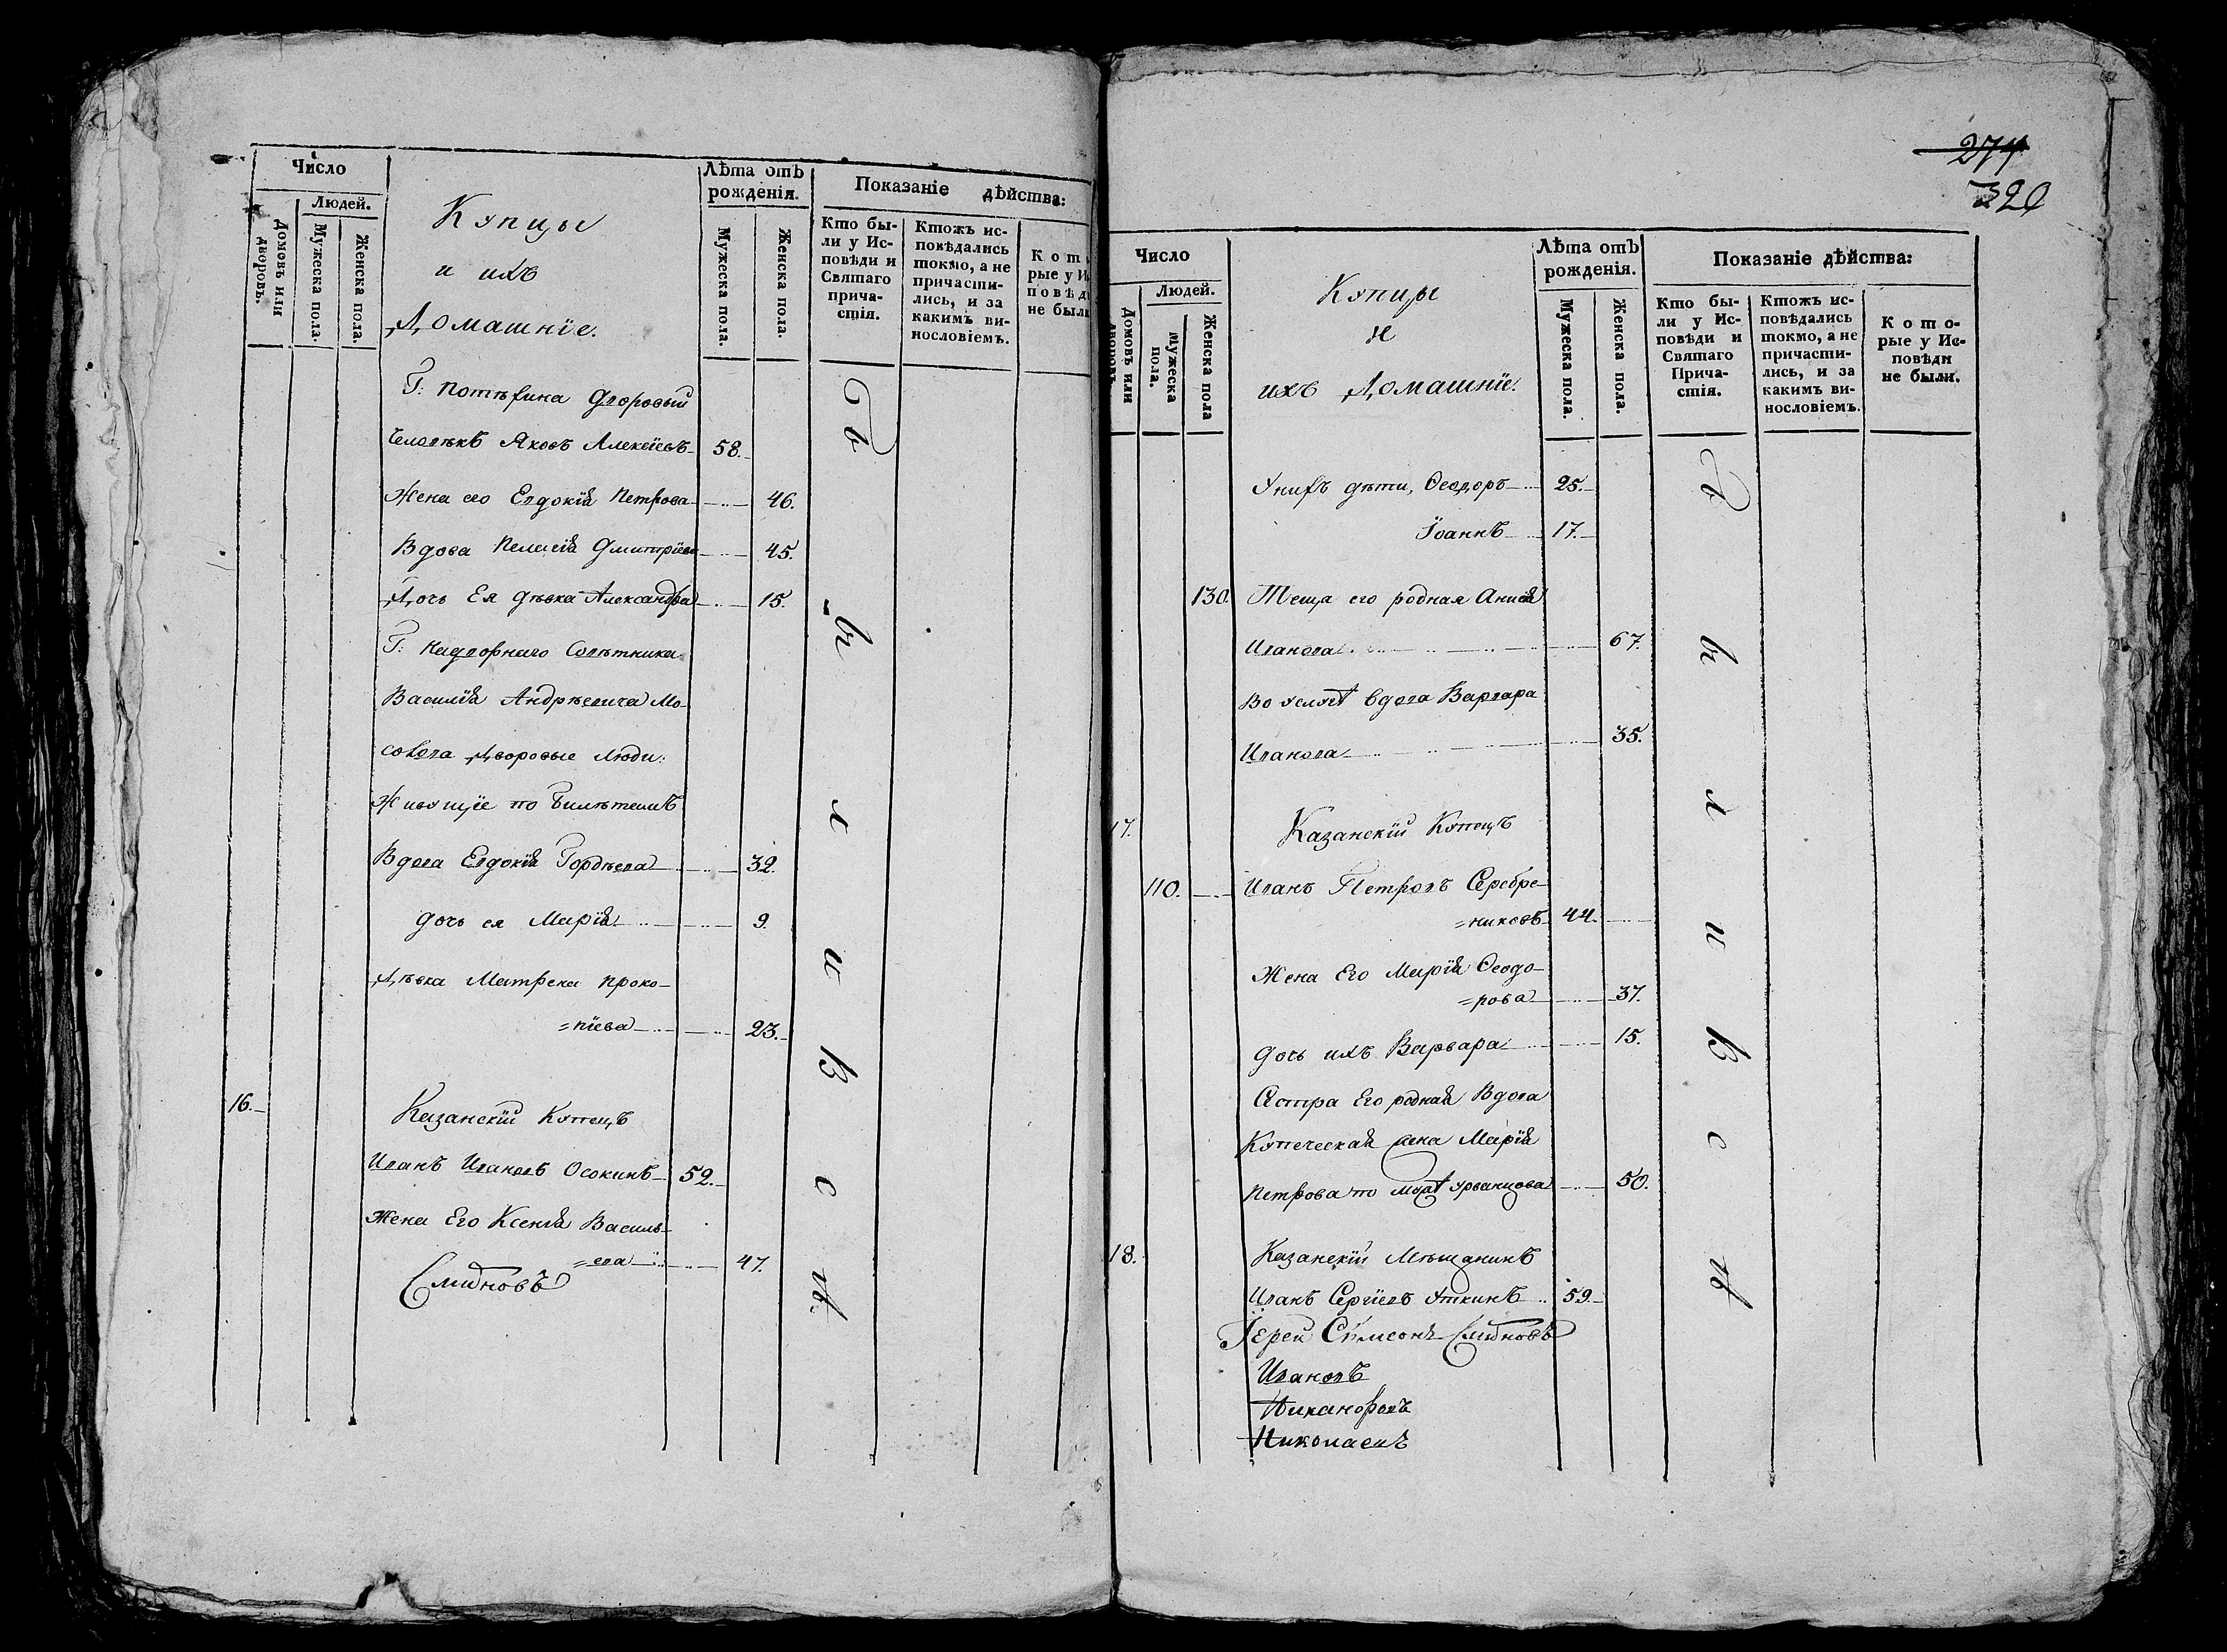 Число
Людей.
Домовъ или дворовъ.
Мужеска пола.
Женска пола.
Купцы
и ихъ
Домашніе.
Лѣта отъ
рожденія.
Мужеска пола.
Женска пола.
Показаніе дѣйства:
Кто бы-
ли у Ис-
повѣди и
Святаго
прича-
стія.
Ктожъ ис-
повѣдались
токмо, а не
причасти-
лись, и за
какимъ ви-
нословіемъ.
Кото
рые у И
повѣд
не были
Г: Потѣхина Дворовый
Человѣкъ Яковъ Алексѣевъ 58.
Жена его Евдокія Петрова 46.
Вдова Пелагія Дмитріева 45.
Дочь Ея дѣвка Александра 15.
Г: Надворнаго Совѣтника
Василія Андрѣевича Мо-
сокова дворовые люди:
Живущіе по билѣтамъ
Вдова Евдокія Гордѣева 32.
дочь ея Марія 9.
Дѣвка Матрена Проко-
=піева 23.
16. Казанскій Купецъ
Иванъ Ивановъ Осокинъ 52.
Жена Его Ксенія Василь-
=ева 47.
Смирновъ
Были
в с ѣ.
274
320
Число
Людей.
Домовъ или дворовъ.
Мужеска пола.
Женска пола
Купцы
и
ихъ Домашніе.
Лѣта отъ
рожденія.
Мужеска пола.
Женска пола.
Показаніе дѣйства:
Кто бы-
ли у Ис-
повѣди и
Святаго
Прича-
стія.
Ктожъ ис-
повѣдались
токмо, а не
причасти-
лись, и за
какимъ ви-
нословіемъ.
Кото-
рые у Ис-
повѣди
не были.
У нихъ дѣти, Ѳеодоръ 25.
Іоаннъ 17.
130. Теща его родная Анисія
Иванова 67.
Во услугѣ вдова Варвара
Иванова 35.
17. Казанскій Купецъ
110. Иванъ Петровъ Серебре-
=никовъ 44.
Жена Его Марія Ѳеодо-
=рова 37.
дочь ихъ Варвара 15.
Сестра Его родная Вдова
Купеческая жена Марія
Петрова по мужѣ Урванцова 50.
18. Казанскій Мѣщанинъ
Иванъ Сергіевъ Уткинъ 59.
Іерей Сѵмеонъ Смирновъ
Ивановъ
Никаноровъ
Николаевъ
Были
в с ѣ